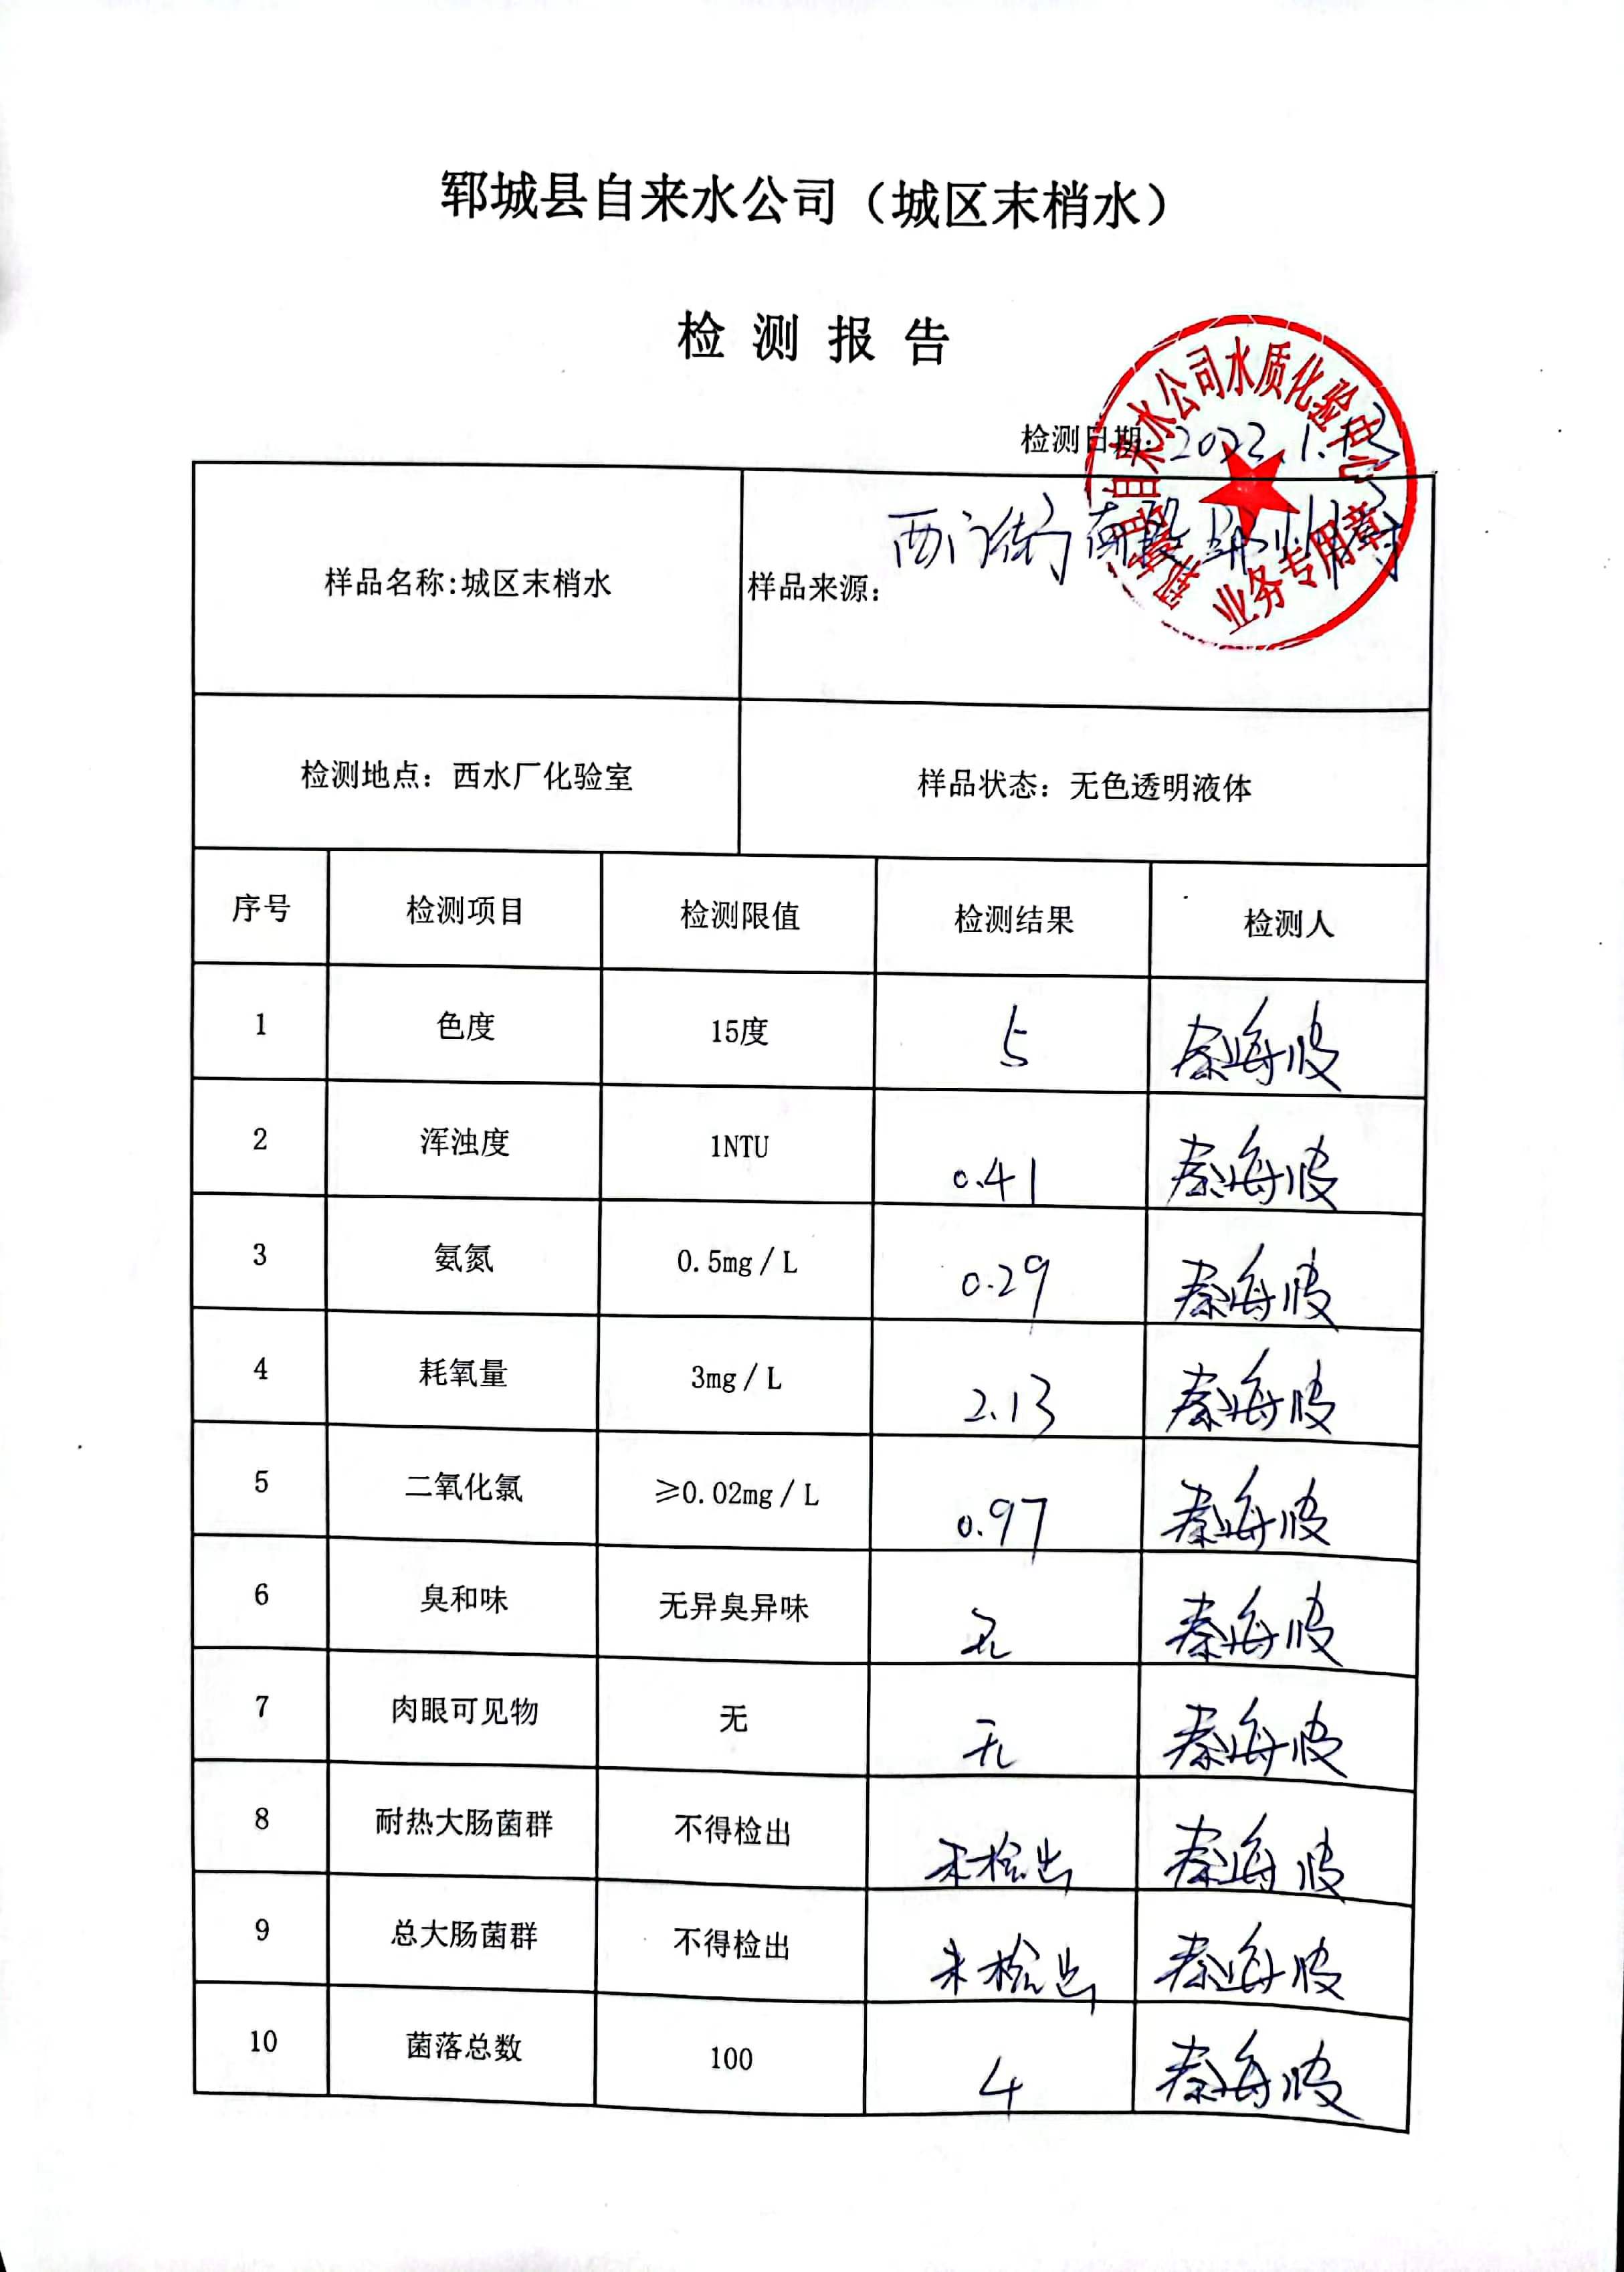 郓城县自来水公司（城区末梢水）
检测报告
检测日期：2023.1.13
样品名称:城区末梢水
样品来源：西门街南段
自来水公司水质化验中心
业务专用章
检测地点：西水厂化验室
样品状态：无色透明液体
序号 检测项目 检测限值 检测结果 检测人
1 色度 15度 5 秦海波
2 浑浊度 1NTU 0.41 秦海波
3 氨氮 0.5mg/L 0.29 秦海波
4 耗氧量 3mg/L 2.13 秦海波
5 二氧化氯 ≥0.02mg/L 0.97 秦海波
6 臭和味 无异臭异味 无 秦海波
7 肉眼可见物 无 无 秦海波
8 耐热大肠菌群 不得检出 未检出 秦海波
9 总大肠菌群 不得检出 未检出 秦海波
10 菌落总数 100 4 秦海波